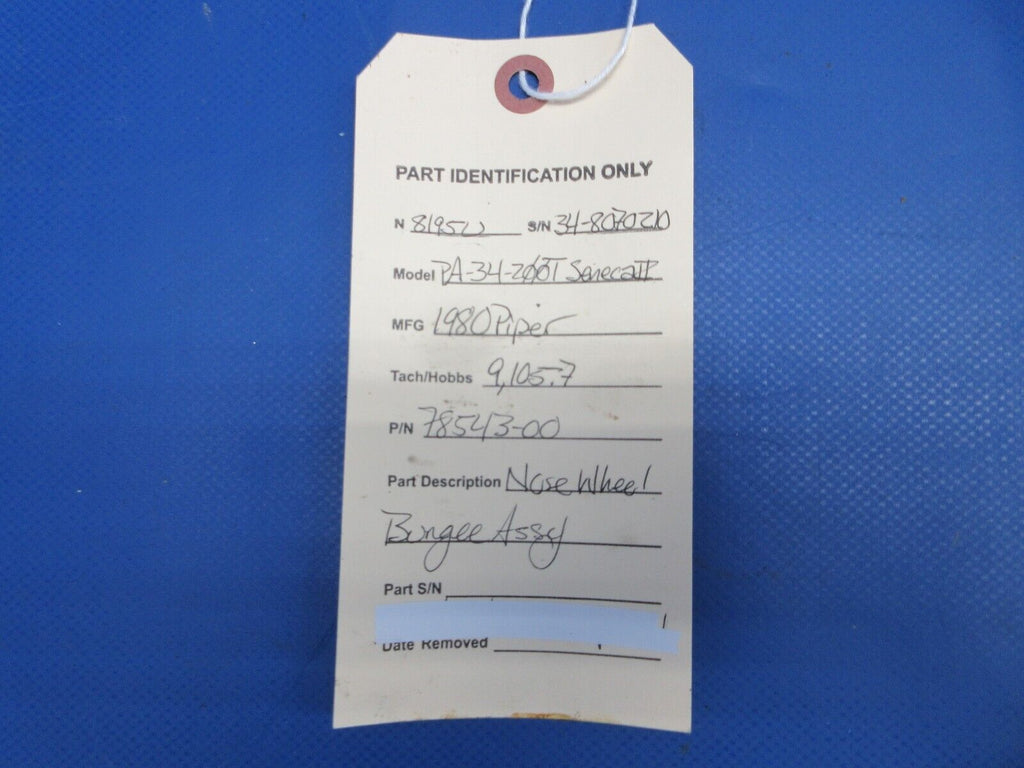 PART IDENTIFICATION ONLY
N 8195U S/N 34-8070210
Model PA-34-200T Seneca II
MFG 1980 Piper
Tach/Hobbs 9,105.7
P/N 78543-00
Part Description Nose Wheel
Bungee Assy
Part S/N
Date Removed